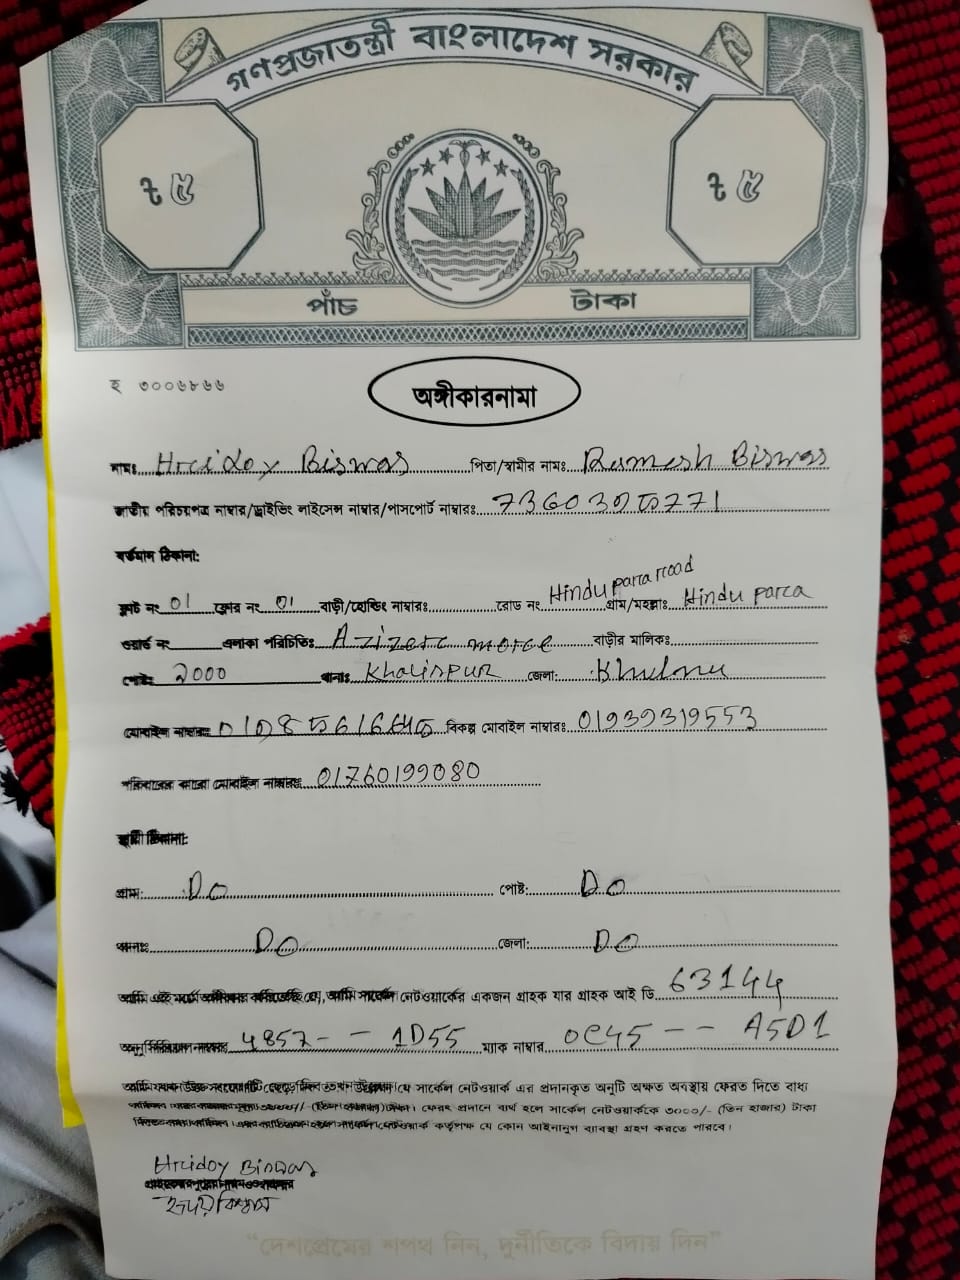 গণপ্রজাতন্ত্রী বাংলাদেশ সরকার
৳ ৫ ৳ ৫
পাঁচ টাকা
হ ৩০০৬৮৬৬
অঙ্গীকারনামা
নামঃ Hridoy Biswas পিতা/স্বামীর নামঃ Ramesh Biswas
জাতীয় পরিচয়পত্র নাম্বার/ড্রাইভিং লাইসেন্স নাম্বার/পাসপোর্ট নাম্বারঃ
বর্তমান ঠিকানা:
ফ্লাট নং 01 ফ্লোর নং 01 বাড়ী/হোল্ডিং নাম্বারঃ রোড নং Hindu para road গ্রাম/মহল্লাঃ Hindu para
ওয়ার্ড নং এলাকা পরিচিতিঃ বাড়ীর মালিকঃ
পোষ্টঃ থানাঃ Khalispur জেলা: Khulna
মোবাইল নাম্বারঃ বিকল্প মোবাইল নাম্বারঃ 01939319553
পরিবারের কারো মোবাইল নাম্বারঃ 01760199080
স্থায়ী ঠিকানা:
গ্রাম: Do পোষ্ট: Do
থানাঃ Do জেলা: Do
আমি এই মর্মে অঙ্গীকার করিতেছি যে, আমি সার্কেল নেটওয়ার্কের একজন গ্রাহক যার গ্রাহক আই ডি 63144
4857-- 1D55 ম্যাক নাম্বার 0C45-- A5D1
যে সার্কেল নেটওয়ার্ক এর প্রদানকৃত অনুটি অক্ষত অবস্থায় ফেরত দিতে বাধ্য
টাকা। ফেরৎ প্রদানে ব্যর্থ হলে সার্কেল নেটওয়ার্ককে ৩০০০/- (তিন হাজার) টাকা
নেটওয়ার্ক কর্তৃপক্ষ যে কোন আইনানুগ ব্যবস্থা গ্রহণ করতে পারবে।
Hridoy Biswas
হৃদয় বিশ্বাস
“দেশপ্রেমের শপথ নিন, দুর্নীতিকে বিদায় দিন”